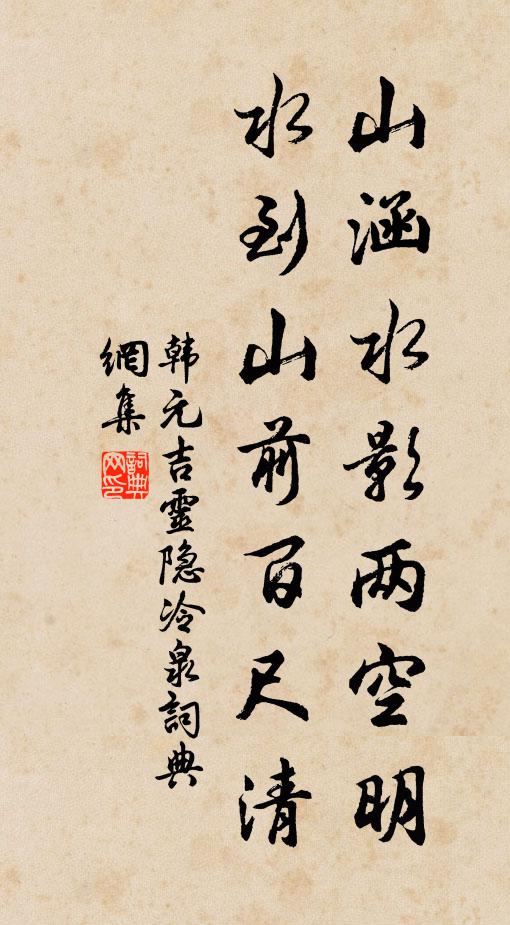 山涵水影两空明
水到山前百尺清
韩元吉靈隐冷泉詞典
網集
詞典
网印